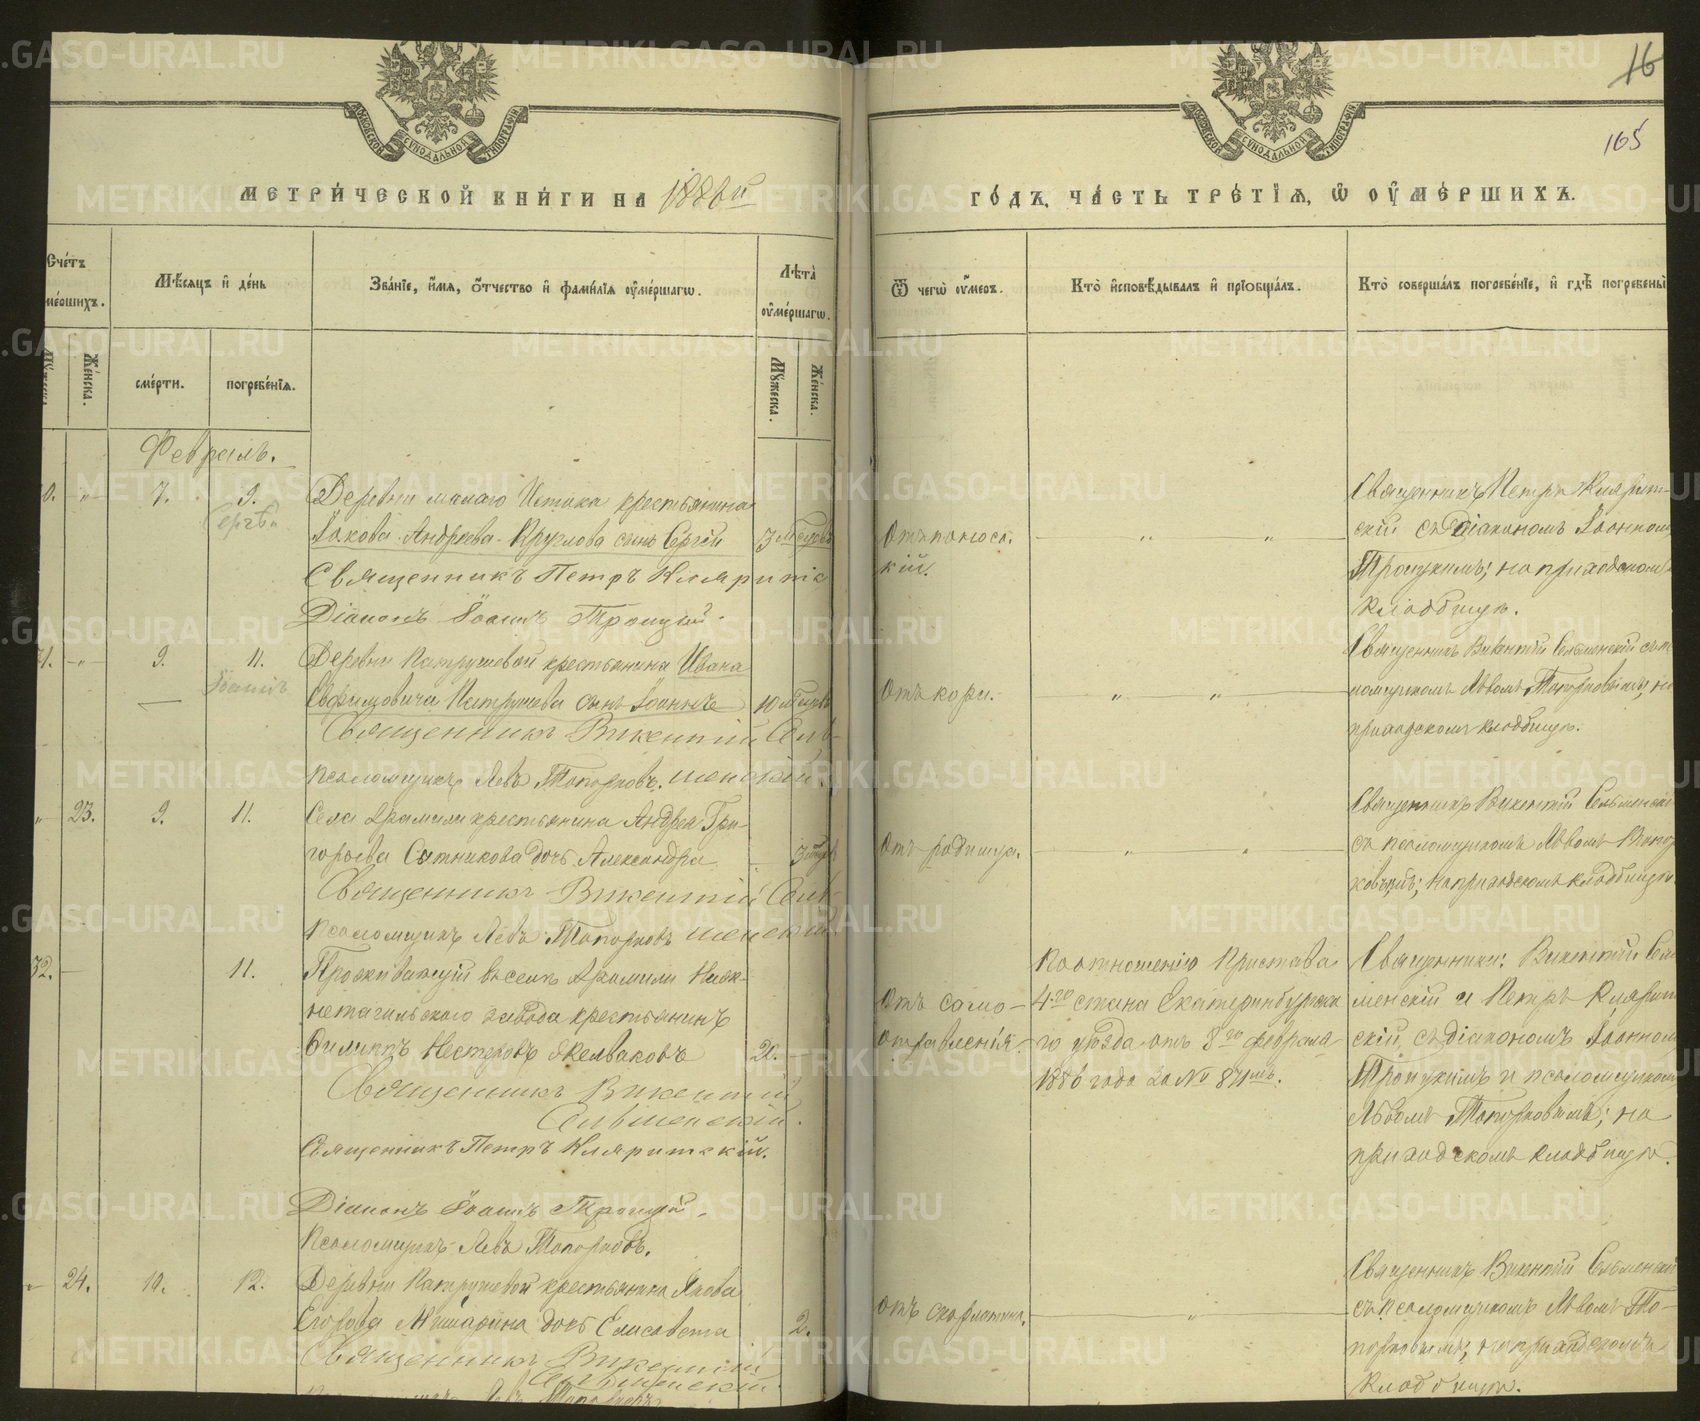 16
165
МЕТРИ́ЧЕСКОЙ КНИ́ГИ НА 1886й
ГО́ДЪ, ЧА́СТЬ ТРЕ́ТІЯ, Ѡ ОУМЕ́РШИХЪ.
Сче́тъ
Мѣ́сяцъ и де́нь
Зва́нїе, и́мя, о́тчество и фами́лїя оуме́ршагѡ.
Лѣта̀ оуме́ршагѡ.
Ѿ чегѡ̀ оу́меръ.
Кто̀ исповѣ́дывалъ и прїобща́лъ.
Кто̀ соверша́лъ погребе́нїе, и гдѣ̀ погребены̀
Же́нска.
сме́рти.
погребе́нїя.
Му́жеска.
Же́нска.
Февраль.
7. 9.
Сергѣй
Деревни малаго Истока крестьянина
Іакова Андреева Круглова сынъ Сергій
Священникъ Петръ Кляритс
Діаконъ Іоаннъ Троицкій.
Священникъ Петръ Клярит-
скій съ діакономъ Іоанномъ
Троицкимъ; на приходскомъ
кладбищѣ.
9. 11.
Іоаннъ
Деревни Патрушевой крестьянина Ивана
Евфимовича Патрушева сынъ Іоаннъ
Священникъ Викентій Сель-
менскій.
Псаломщикъ Левъ Топорковъ.
Отъ кори.
Священникъ Викентій Сельменскій съ пса
ломщикомъ Львомъ Топорковымъ; на
приходскомъ кладбищѣ.
23. 9. 11.
Села Арамили крестьянина Андрея Гри-
горьева Сытникова дочь Александра
Священникъ Викентій Сель-
менскій
Псаломщикъ Левъ Топорковъ
Отъ родимца.
Священникъ Викентій Сельменскій
съ псаломщикомъ Львомъ Топор
ковымъ; на приходскомъ кладбищѣ.
32. 11.
Проживающій въ селѣ Арамили Ниж-
нетагильскаго завода крестьянинъ
Филиппъ Нестеровъ
20.
Священникъ Викентій
Сельменскій.
Священникъ Петръ Кляритскій.
Діаконъ Іоаннъ Троицкій.
Псаломщикъ Левъ Топорковъ.
Отъ само-
отравленія.
По отношенію Пристава
4го стана Екатеринбургска
го уѣзда отъ 8го февраля
1886 года за №
Священники: Викентій Сель
менскій и Петръ Клярит
скій, съ діакономъ Іоанномъ
Троицкимъ и псаломщикомъ
Львомъ Топорковымъ; на
приходскомъ кладбищѣ.
24. 10. 12.
Деревни Патрушевой крестьянина Якова
Егорова Мишарина дочь Елисавета
2.
Священникъ Викентій
Сельменскій.
Отъ скарлатина.
Священникъ Викентій Сельменскій
съ псаломщикомъ Львомъ То-
порковымъ; на приходскомъ
кладбищѣ.
METRIKI.GASO-URAL.RU